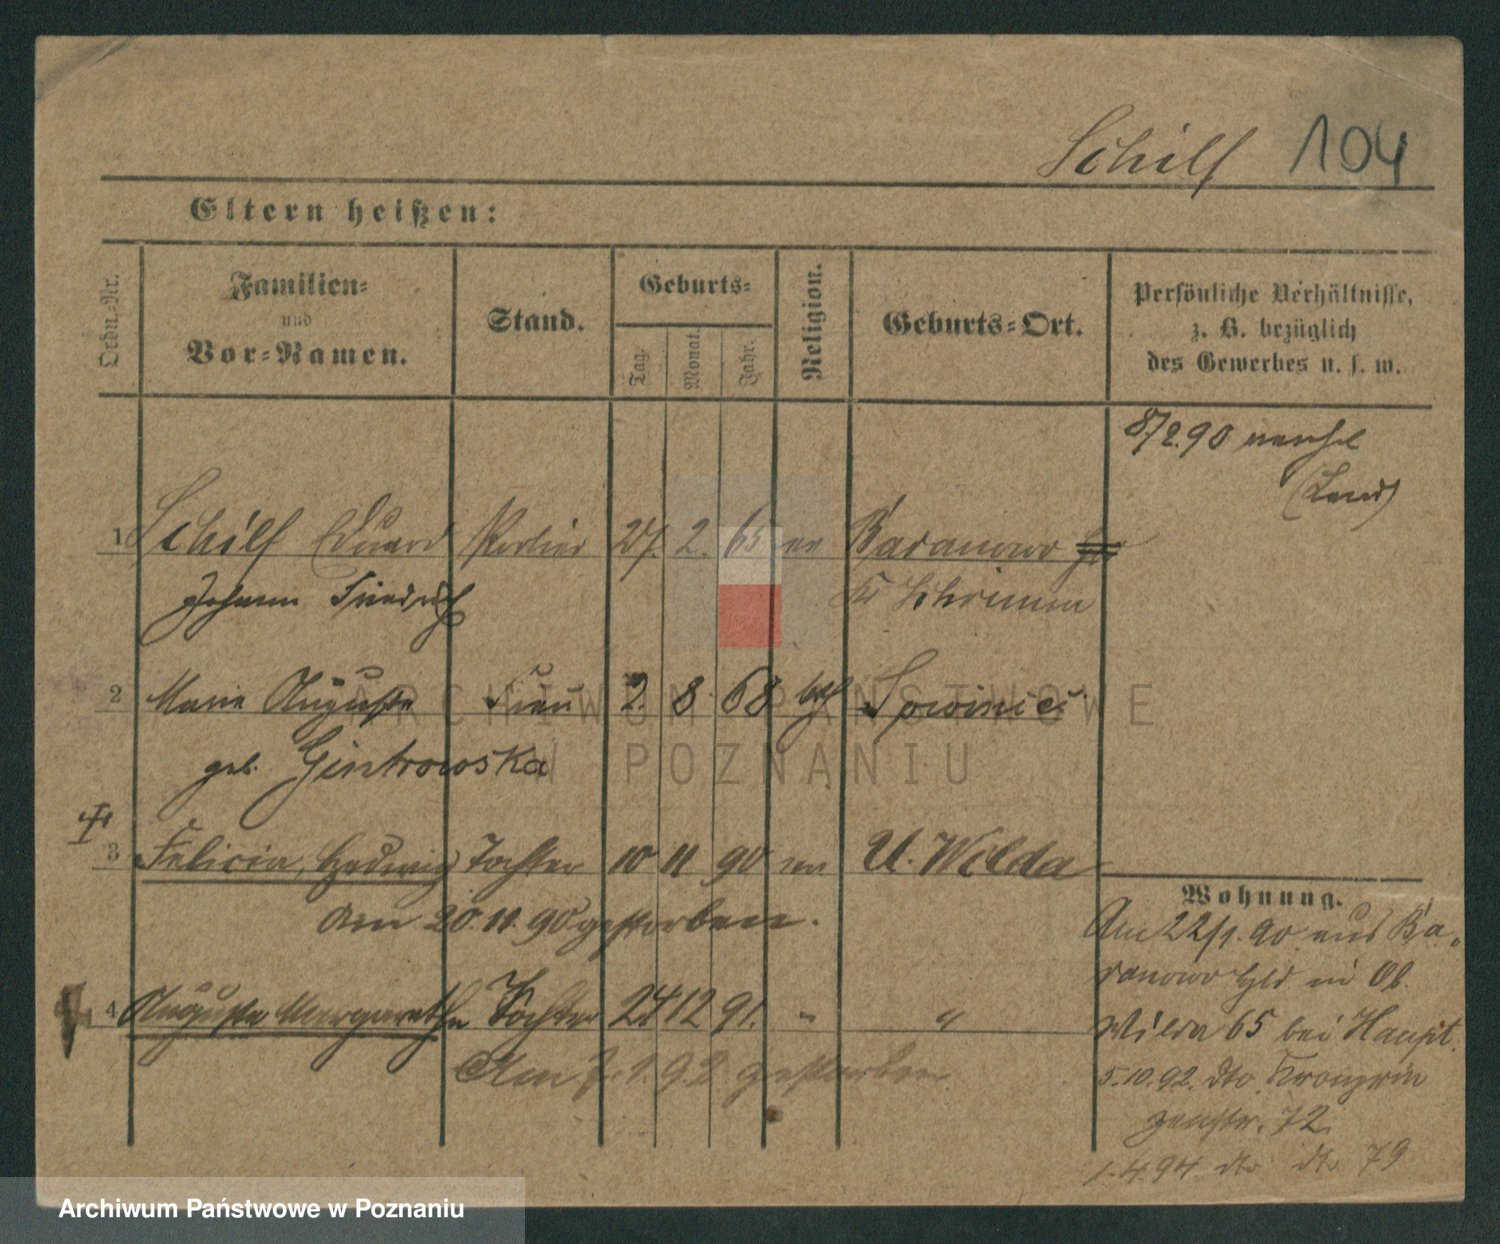 Schilf 104
Eltern heißen:
Ordn.-Nr.
Familien-
und
Vor-Namen.
Stand.
Geburts-
Tag.
Monat.
Jahr.
Religion.
Geburts-Ort.
Persönliche Verhältnisse,
z. B. bezüglich
des Gewerbes u. s. w.
8/2.90
(Land)
1 Schilf Eduard 27. 2. 65 Baranowo
Johann Friedrich Kr Schrimm
2 Marie Auguste Frau 2. 8 68 kth
geb. Gintrowska
3 Felicia, Hedwig Tochter 10 11 90 U. Wilda
am 20.11.90 gestorben.
4 Auguste Margarethe Tochter 24 12 91. " "
Am 7.1.92 gestorben
Wohnung.
Am 22/1.90 aus Ba-
ranowo in Ob.
Wilda 65 bei Haupt.
5.10.92. dto. Kronprin
zenstr. 72.
1.4.94. dto dto 79
ARCHIWUM PAŃSTWOWE
W POZNANIU
Archiwum Państwowe w Poznaniu